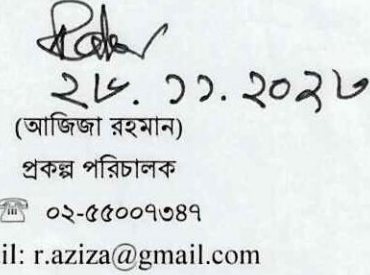 ২৮. ১১. ২০২৩
(আজিজা রহমান)
প্রকল্প পরিচালক
☏ ০২-৫৫০০৭৩৪৭
il: r.aziza@gmail.com